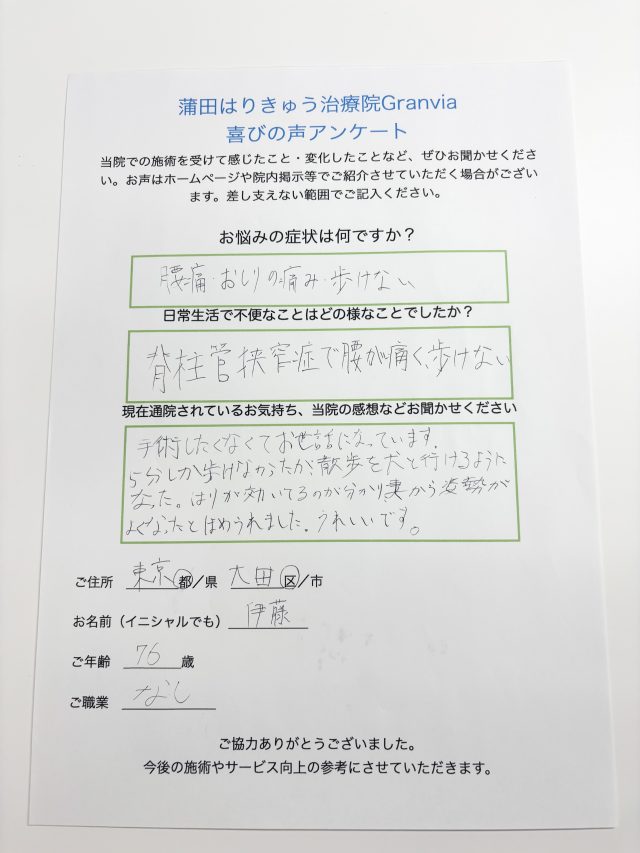 蒲田はりきゅう治療院Granvia
喜びの声アンケート
当院での施術を受けて感じたこと・変化したことなど、ぜひお聞かせくださ
い。お声はホームページや院内掲示等でご紹介させていただく場合がござい
ます。差し支えない範囲でご記入ください。
お悩みの症状は何ですか？
腰痛・おしりの痛み・歩けない
日常生活で不便なことはどの様なことでしたか？
脊柱管狭窄症で腰が痛く、歩けない
現在通院されているお気持ち、当院の感想などお聞かせください
手術したくなくてお世話になっています。
5分しか歩けなかったが、散歩を犬と行けるように
なった。はりが効いてるのが分かり妻から姿勢が
よくなったとほめられました。うれしいです。
ご住所 東京都/県 大田区/市
お名前（イニシャルでも）伊藤
ご年齢 76 歳
ご職業 なし
ご協力ありがとうございました。
今後の施術やサービス向上の参考にさせていただきます。